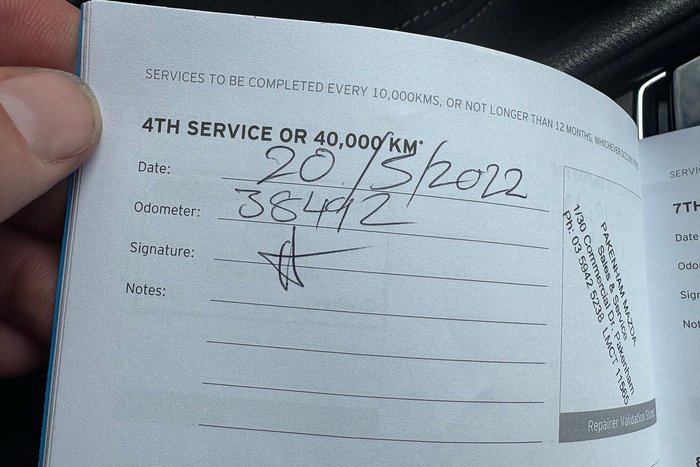 SERVICES TO BE COMPLETED EVERY 10,000KMS, OR NOT LONGER THAN 12 MONTHS, WHICHEVER
4TH SERVICE OR 40,000 KM*
Date: 20/5/2022
Odometer: 38492
Signature:
Notes:
PAKENHAM MAZDA
Sales & Service
1/30 Commercial Dr. Pakenham
Ph: 03 5942 5236 LMCT 11565
Repairer Validation Stamp
SERVIC
7TH
Date
Odo
Sign
Not